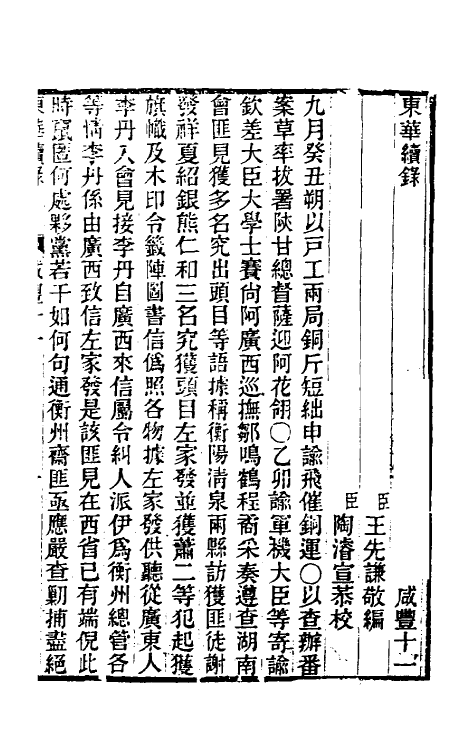 東華續錄 咸豐十一
臣王先謙敬編
臣陶濬宣恭校
九月癸丑朔以戸工兩局銅斤短絀申諭飛催銅運〇以查辦番
案草率拔署陝甘總督薩迎阿花翎〇乙卯諭軍機大臣等寄諭
欽差大臣大學士賽尙阿廣西巡撫鄒鳴鶴程矞采奏遵查湖南
會匪見獲多名究出頭目等語據稱衡陽淸泉兩縣訪獲匪徒謝
發祥夏紹銀熊仁和三名究獲頭目左家發並獲蕭二等犯起獲
旗幟及木印令籤陣圖書信爲照各物據左家發供聽從廣東人
李丹入會見接李丹自廣西來信屬令糾人派伊爲衡州總管各
等情李丹係由廣西致信左家發是該匪見在西省已有端倪此
時竄匿何處夥黨若干如何句通衡州齋匪亟應嚴查勦捕盡絕
東華續錄 咸豐十一 一